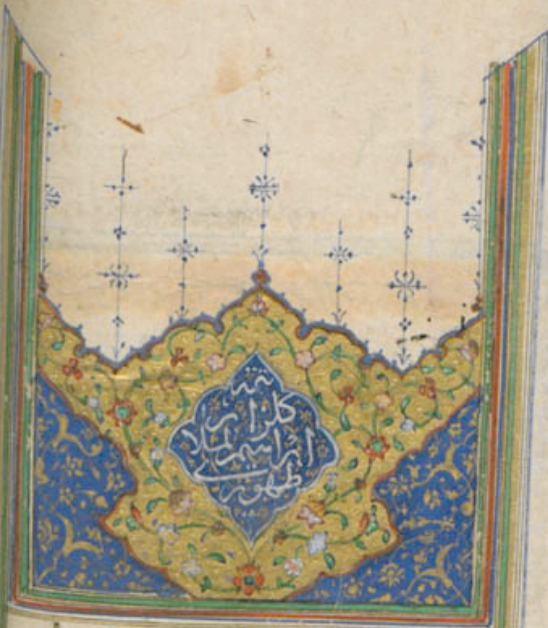 كلزار
ابراهیم ملا
ظهوری